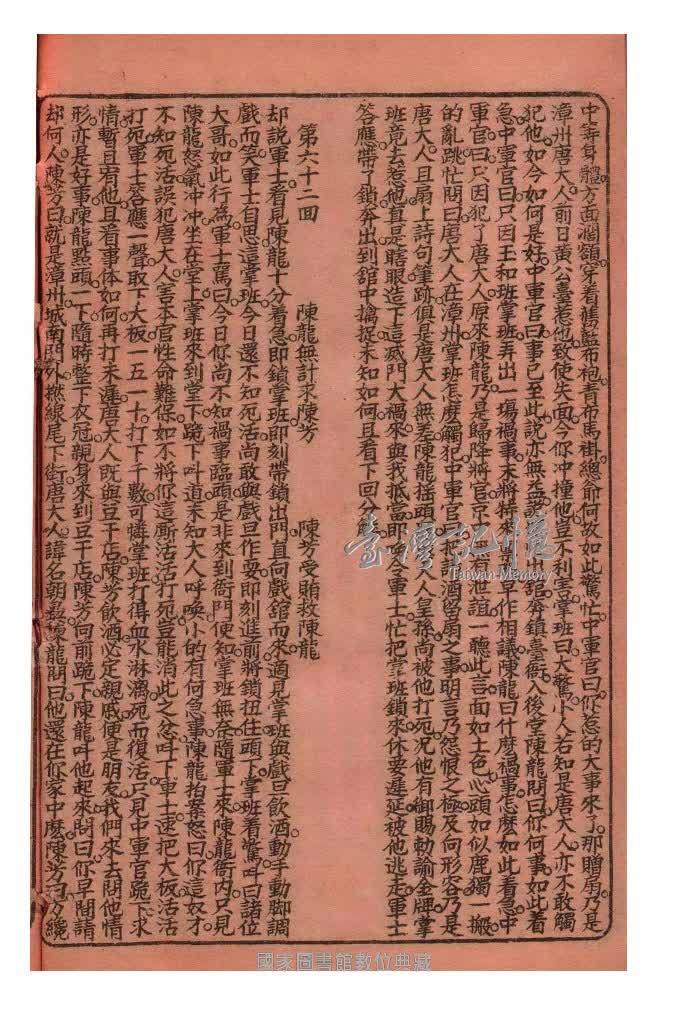 中等身體方面濶額穿着舊藍布袍青布馬褂總爺何故如此驚忙中軍官曰你惹的大事來了那贈扇乃是
漳州唐大人前日黃公臺惹他致使失面今你冲撞他豈不利害掌班曰大驚小人若知是唐大人亦不敢觸
犯他如今如何是好中軍官曰事已至此說亦無益說出舘奔鎮臺衙入後堂陳龍問曰你何事如此着
急中軍官曰只因王和班掌班弄出一塲禍事未將特來早作相議陳龍曰什麼禍事怎麼如此着急中
軍官曰只因犯了唐大人原來陳龍乃是歸降將官京無有泄誼一聽此言面如土色心頭如似鹿獨一搬
的亂跳忙問曰唐大人在漳州掌班怎麼觸犯中軍官把詩酒留扇之事明言乃怨恨之極及问形容乃是
唐大人且扇上詩句筆跡俱是唐大人無差陳龍搖頭大人皇孫尚被他打死况他有御賜勅諭金牌掌
班竟去惹他直是瞎眼造下這滅門大禍來與我抵當即令軍士忙把掌班鎖來休要遲延被他逃走軍士
答應帶了鎖奔出到舘中擒捉未知如何且看下回分解
第六十二回 陳龍無計求陳芳 陳芳受賄救陳龍
却說軍士看見陳龍十分着急即鎖掌班即刻帶鎖出門直向戲舘而來適見掌班與戲旦飲酒動手動脚調
戲而笑軍士自思這掌班今日還不知死活尚敢與戲旦作耍即刻進前將鎖扭住頭下掌班着驚呌曰諸位
大哥如此行為軍士駡曰今日你尚不知禍事臨頭是非來到衙門便知掌班無奈隨軍士來陳龍衙内只見
陳龍怒氣冲冲坐在堂上掌班來到堂下跪下呌道未知大人呼喚小的有何急事陳龍拍案怒曰你這奴才
不知死活誤犯唐大人害本官性命難保如不將你這厮活活打死豈能消此之忿呌下軍士速把大板活活
打死軍士答應一聲取下大板一五一十打下千數可憐掌班打得血水淋漓死而復活只見中軍官跪下求
情暫且宥他且看事体如何再打未遲唐大人既與豆干店陳芳飲酒必定親戚便是朋友我們來去問他情
形亦是好事陳龍點頭一下隨時整下衣冠親身來到豆干店陳芳向前跪下陳龍呌他起來問曰你早間請
却何人陳芳曰就是漳州城南門外撚線尾下街唐大人諱名朝彞陳龍問曰他還在你家中麼陳芳曰方纔
臺灣記憶
Taiwan Memory
國家圖書館數位典藏